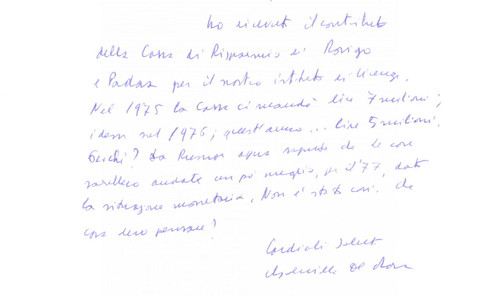 Ho ricevuto il contributo
della Cassa di Risparmio di Rovigo
e Padova per il nostro istituto di
Nel 1975 la Cassa ci mandò lire 7 milioni;
idem nel 1976; quest'anno... lire 5 milioni.
Perchè? La aveva che le cose
sarebbero andate un pò meglio, per il '77, data
la situazione monetaria. Non è stato così. Che
cosa devo pensare?
Cordiali saluti